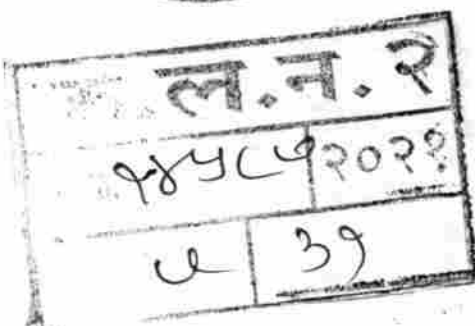 ल.न.२
१४५८५ २०२१
५ ३१